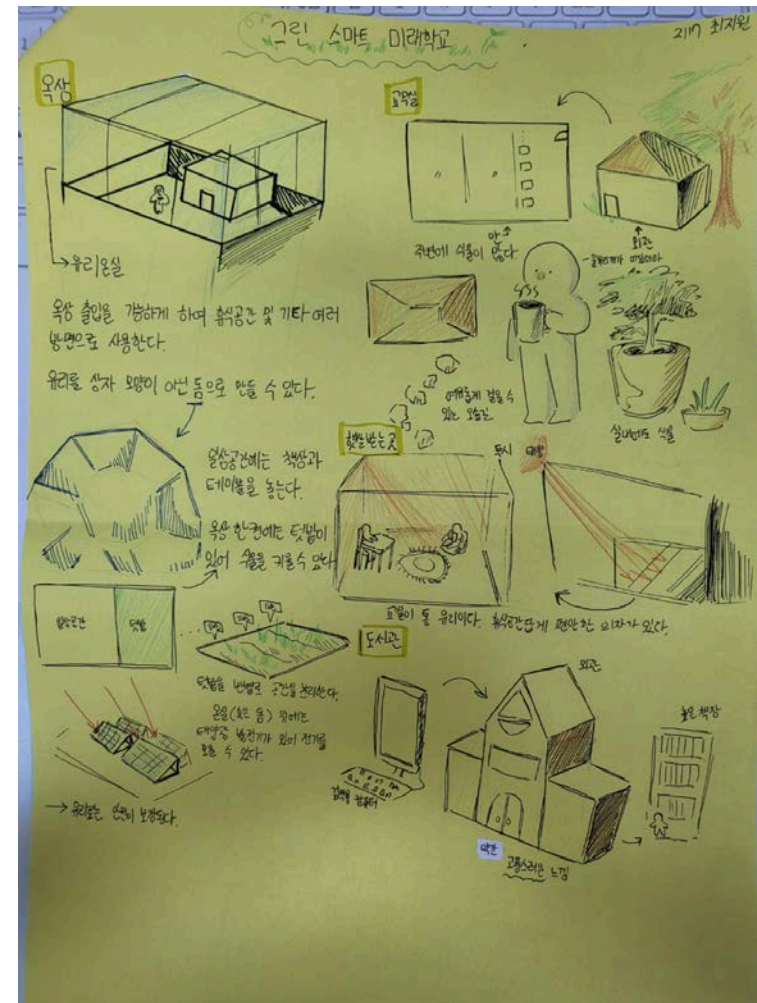 그린 스마트 미래학교
2117 최지원
옥상
유리온실
옥상 출입을 가능하게 하며 휴식공간 및 기타 여러
방면으로 사용한다.
유리를 상자 모양이 아닌 돔으로 만들 수 있다.
책상과
테이블을 놓는다.
옥상 한켠에는 텃밭이
있어 식물을 키울 수 있다.
텃밭
텃밭을 반별로 공간을 분리한다.
온실(혹은 돔) 뒤에는
태양광 발전기가 있어 전기를
모을 수 있다.
유리로는 안전이 보장된다.
교무실
안
주변에 식물이 많다
외관
여유롭게 걸을 수
있는 오솔길
실내에도 식물
햇빛받는곳
교실이 통 유리이다. 휴식공간답게 편안한 의자가 있다.
도서관
외관
높은 책장
검색용 컴퓨터
약간
고풍스러운 느낌